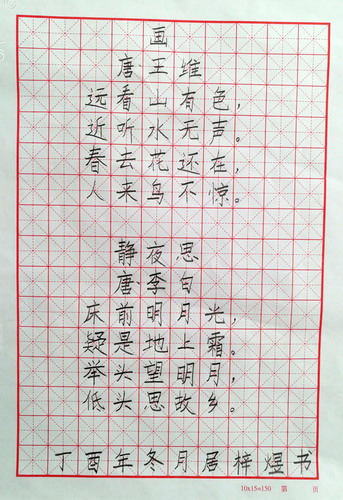 画
唐 王维
远看山有色，
近听水无声。
春去花还在，
人来鸟不惊。
静夜思
唐 李白
床前明月光，
疑是地上霜。
举头望明月，
低头思故乡。
丁酉年冬月居梓煜书
10x15=150 第 页